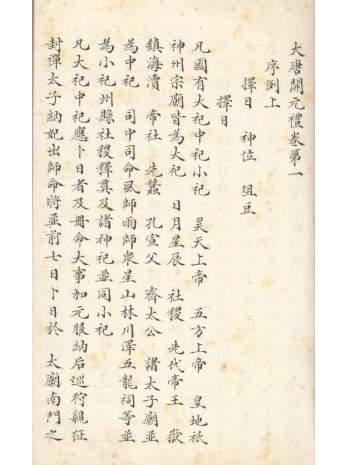 大唐開元禮卷第一
序例上
擇日 神位 俎豆
擇日
凡國有大祀中祀小祀 昊天上帝 五方上帝 皇地祇
神州宗廟皆為大祀 日月星辰 社稷 先代帝王 嶽
鎮海瀆 帝社 先蠶 孔宣父 齊太公 諸太子廟並
為中祀 司中司命風師雨師衆星山林川澤五龍祠等並
為小祀州縣社稷釋奠及諸神祀並同小祀
凡大祀中祀應卜日者及冊命大事加元服納后巡狩親征
封禪太子納妃出師命將並前七日卜日於 太廟南門之